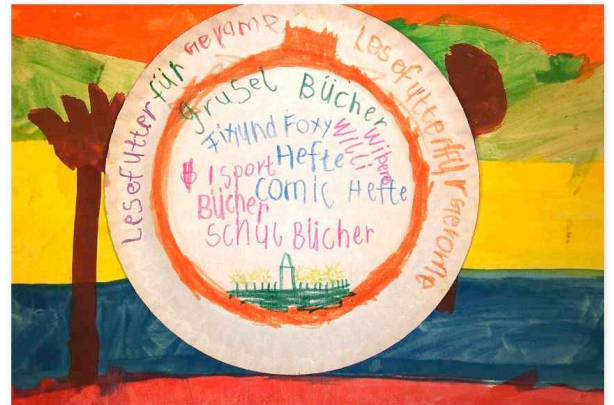 Lesefutter für
Lesefutter für
grusel Bücher
Fix und Foxy
Willi
Wiberg
Hefte
1 sport
Bücher
comic Hefte
schul Bücher